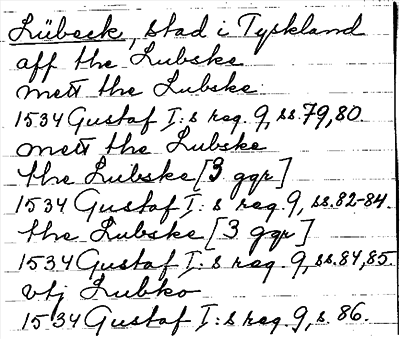 Lübeck, stad i Tyskland
aff the Lubske
mett the Lubske
1534 Gustaf I:s reg. 9, ss. 79, 80.
mett the Lubske
the Lubske [3 ggr]
1534 Gustaf I:s reg. 9, ss. 82-84.
the Lubske [3 ggr]
1534 Gustaf I:s reg. 9, ss. 84, 85.
vtj Lubko
1534 Gustaf I:s reg. 9, s. 86.